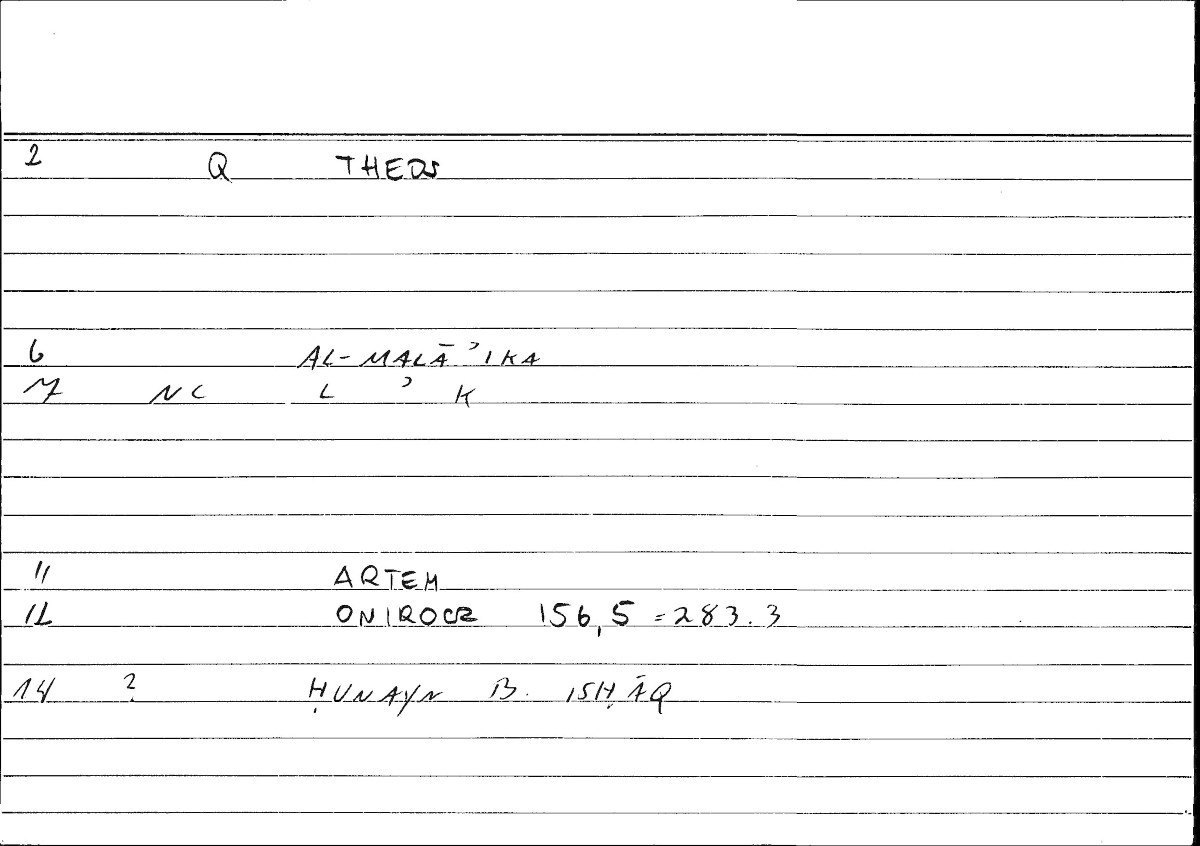 2 Q THEOS
6 AL-MALĀʾIKA
7 NC L ʾ K
11 ARTEM
12 ONIROCR 156,5 = 283.3
14 ? ḤUNAYN B. ISḤĀQ